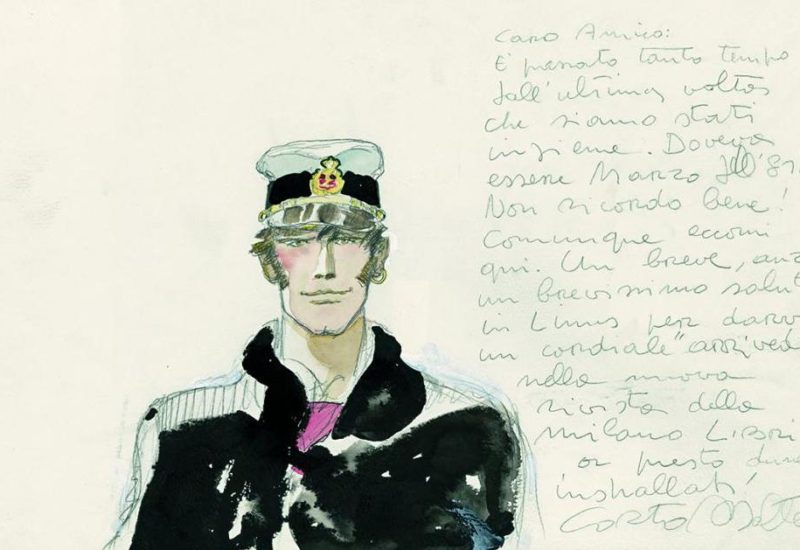 Caro Amico:
E' passato tanto tempo
dall'ultima volta
che siamo stati
insieme. Doveva
essere Marzo dell'81
Non ricordo bene!
Comunque eccomi
qui. Un breve, anz
un brevissimo salut
in Linus per darvi
un cordiale "arrived
nella nuova
rivista della
Milano Libri
presto
Corto Malte